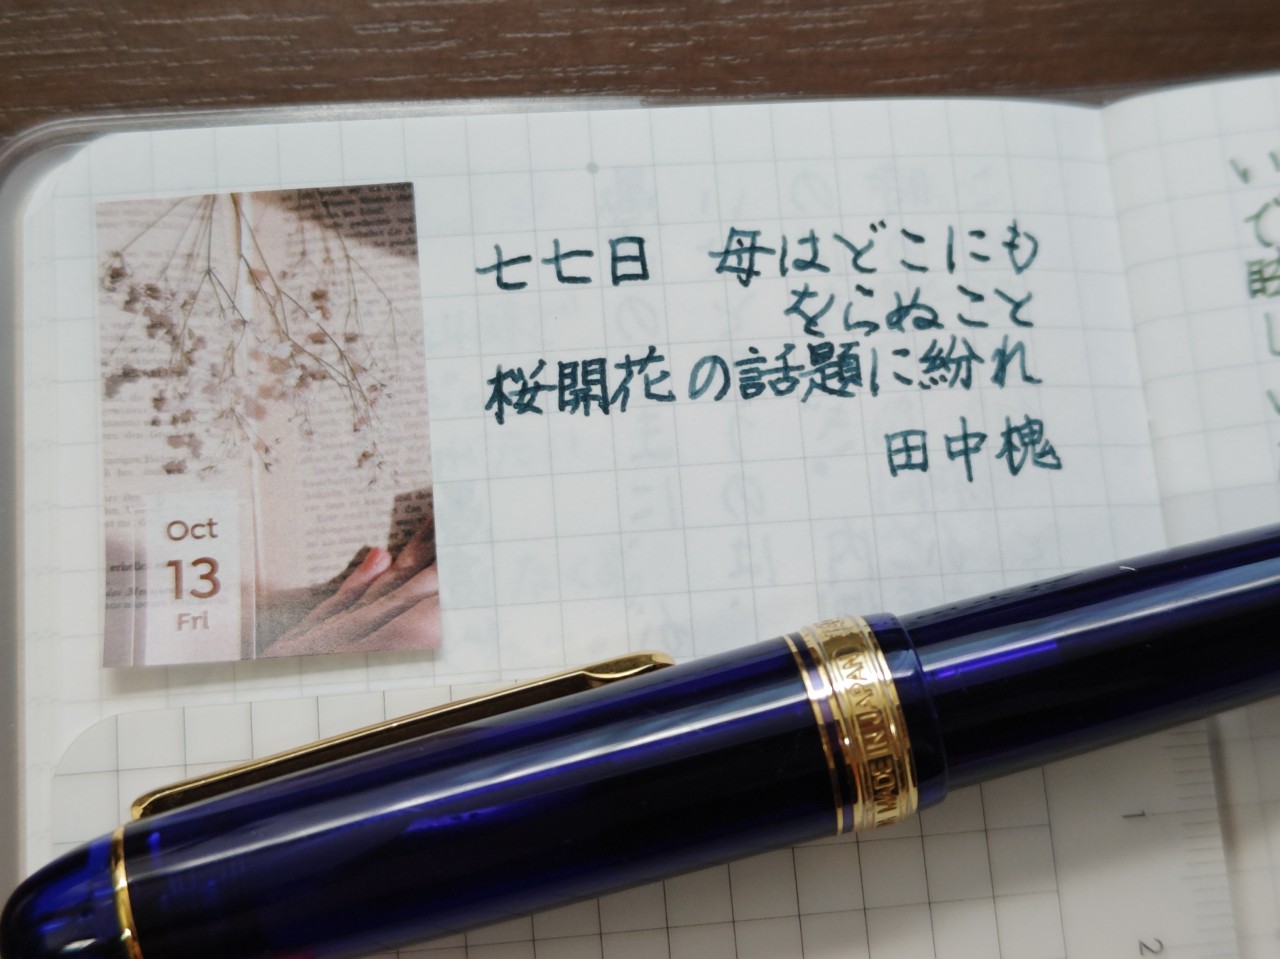 Oct
13
Fri
七七日　母はどこにも
をらぬこと
桜開花の話題に紛れ
田中槐
MADE IN JAPAN
1
2